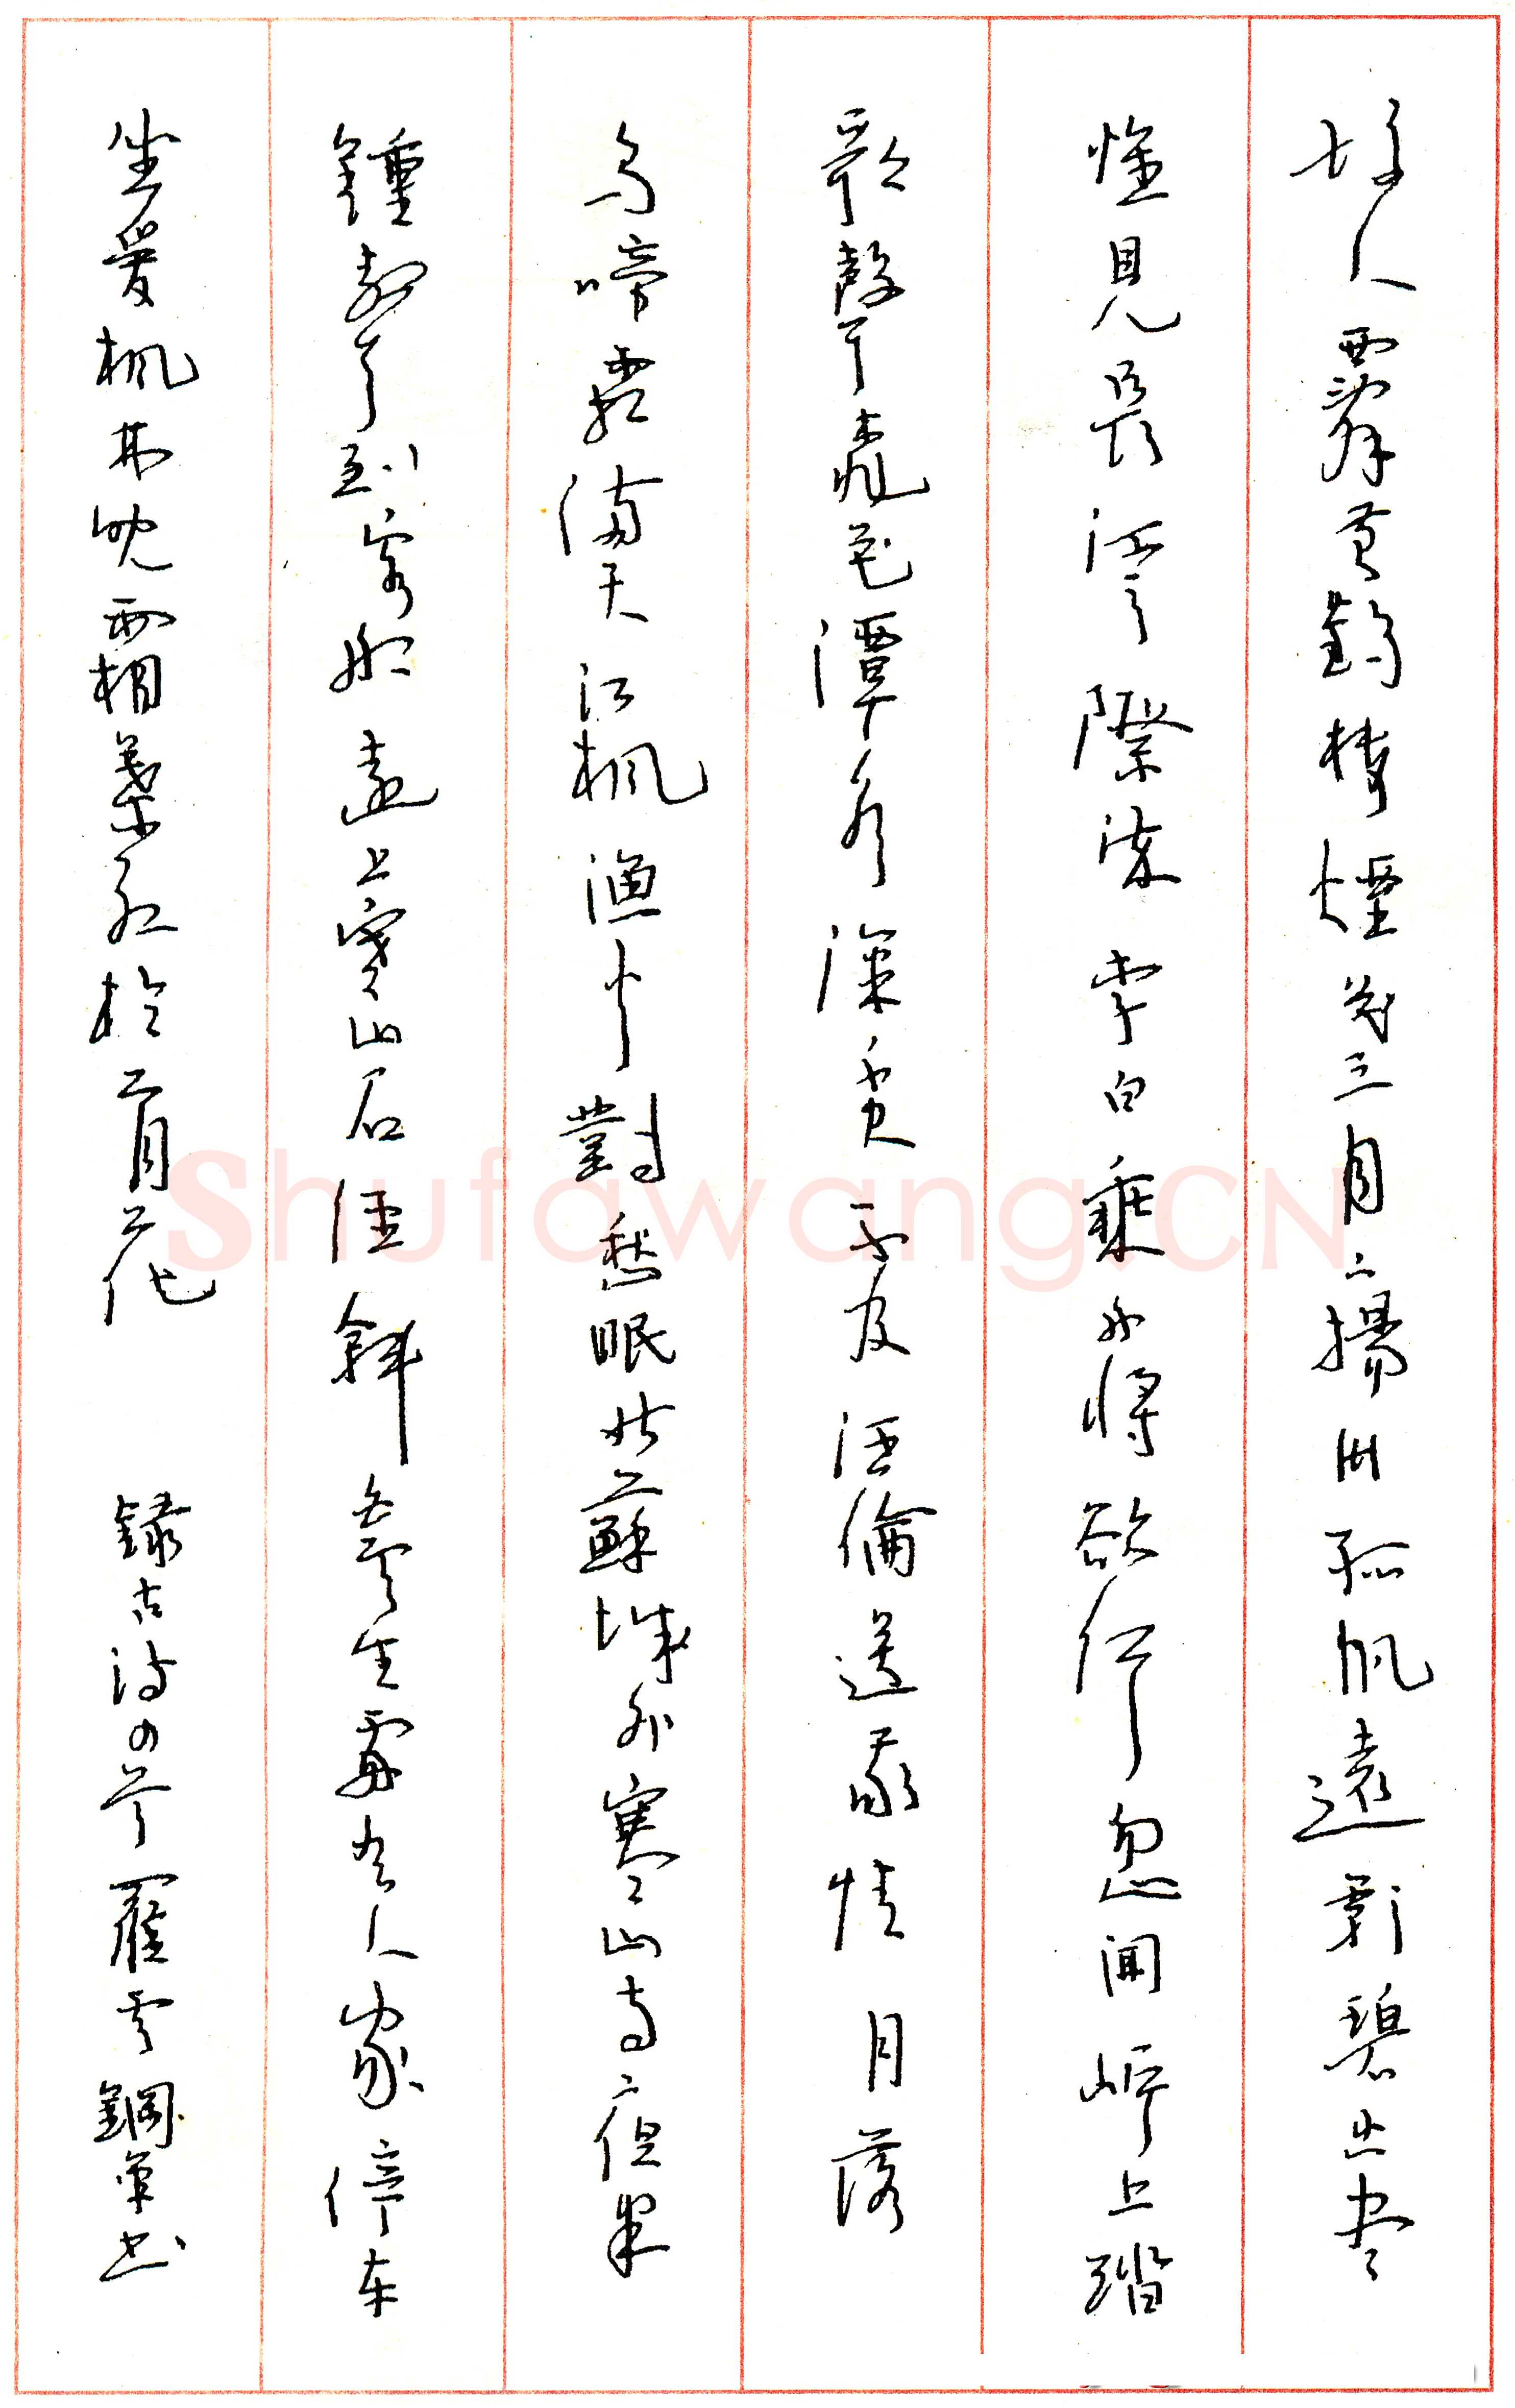 故人西辭黃鶴樓煙花三月下揚州孤帆遠影碧山尽
惟見長江天際流李白乘舟將欲行忽聞岸上踏
歌聲桃花潭水深千尺不及汪倫送我情月落
烏啼霜滿天江楓漁火對愁眠姑蘇城外寒山寺夜半
鍾聲到客船遠上寒山石徑斜白雲生處有人家停车
坐愛楓林晚霜葉紅於二月花錄古詩四首羅雲鋼筆书
Shufawang.CN